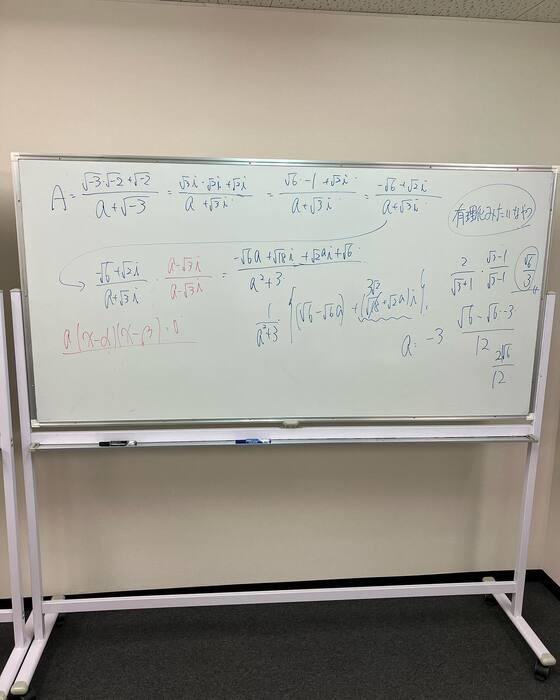 A = (√-3·√-2 + √-2)/(a + √-3) = (√3i·√2i + √2i)/(a + √3i) = (√6·-1 + √2i)/(a + √3i) = (-√6 + √2i)/(a + √3i)
有理化みたいなやつ
(-√6 + √2i)/(a + √3i) · (a - √3i)/(a - √3i) = (-√6a + √18i + √2ai + √6)/(a² + 3)
1/(a² + 3) {(√6 - √6a) + (√18 + √2a)i}
3√2
a(x-α)(x-β)=0
a = -3
2/(√3+1) · (√3-1)/(√3-1)
√6/3
(√6 - √6·-3)/12
2√6/12